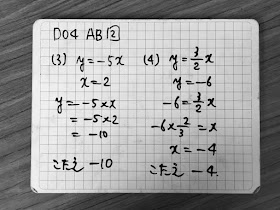 D04 AB 2
(3) y=-5x
x=2
y=-5×x
=-5×2
=-10
こたえ -10
(4) y=3/2x
y=-6
-6=3/2x
-6×2/3=x
x=-4
こたえ -4